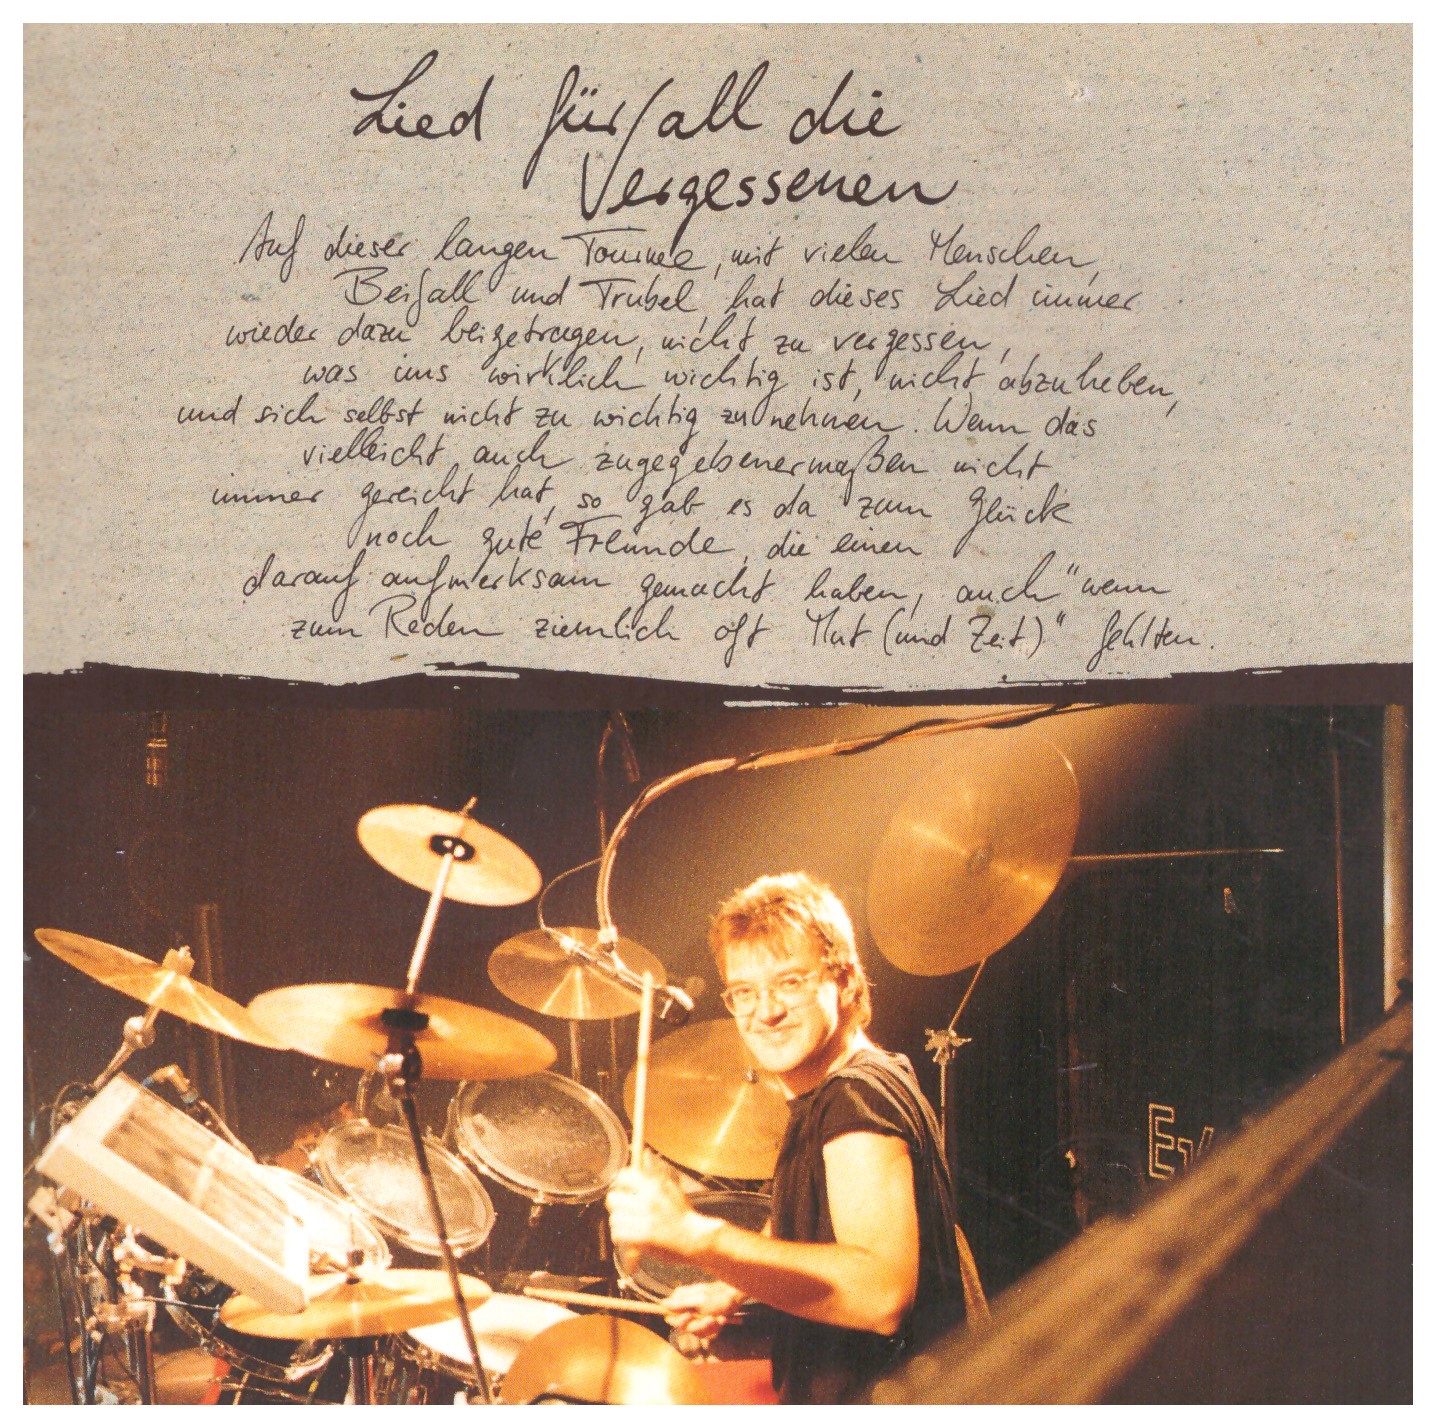 Lied für all die
Vergessenen
Auf dieser langen Tournee, mit vielen Menschen,
Beifall und Trubel, hat dieses Lied immer
wieder dazu beigetragen, nicht zu vergessen,
was uns wirklich wichtig ist, nicht abzuheben,
und sich selbst nicht zu wichtig zu nehmen. Wenn das
vielleicht auch zugegebenermaßen nicht
immer gereicht hat, so gab es da zum Glück
noch gute Freunde, die einen
darauf aufmerksam gemacht haben, auch "wenn
zum Reden ziemlich oft Mut (und Zeit)" fehlten.
EV